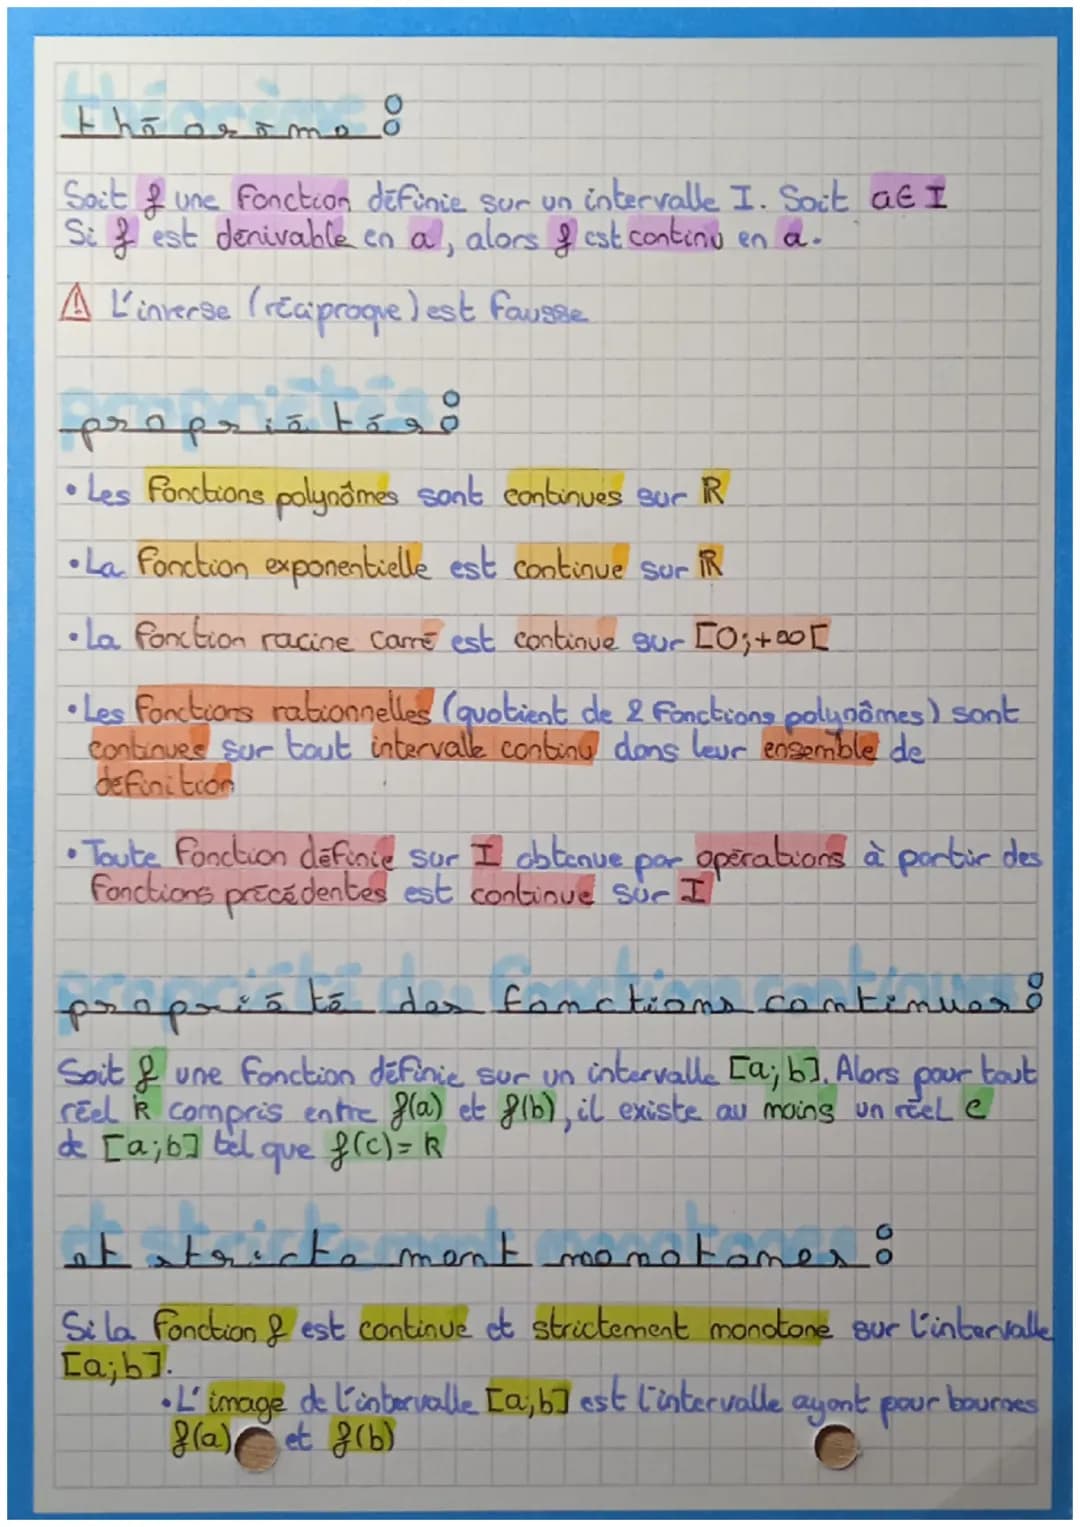 théorème :
Soit f une fonction définie sur un intervalle I. Soit a∈ I
Si f est dérivable en a, alors f est continu en a.
⚠ L'inverse (réciproque) est fausse
propriétés :
• Les fonctions polynômes sont continues sur ℝ
• La fonction exponentielle est continue sur ℝ
• La fonction racine carré est continue sur [0;+∞[
• Les fonctions rationnelles (quotient de 2 fonctions polynômes) sont
continues sur tout intervalle continu dans leur ensemble de
définition
• Toute fonction définie sur I obtenue par opérations à partir des
fonctions précédentes est continue sur I
propriété des fonctions continues :
Soit f une fonction définie sur un intervalle [a;b]. Alors pour tout
réel k compris entre f(a) et f(b), il existe au moins un réel c
de [a;b] tel que f(c)= k
et strictement monotones :
Si la fonction f est continue et strictement monotone sur l'intervalle
[a;b].
• L'image de l'intervalle [a;b] est l'intervalle ayant pour bournes
f(a) et f(b)